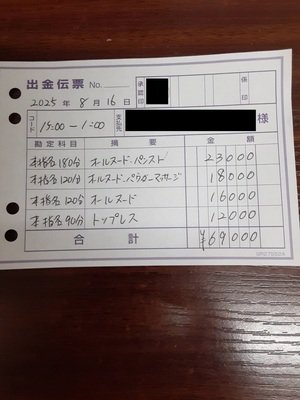 出金伝票 No.
承認印
係印
2025年 8月 16日
コード 15:00-1:00 支払先 様
勘定科目 摘要 金額
本指名180分 オールヌード・パンスト 23000
本指名120分 オールヌード・パウダーマッサージ 18000
本指名120分 オールヌード 16000
本指名90分 トップレス 12000
合計 ¥69000